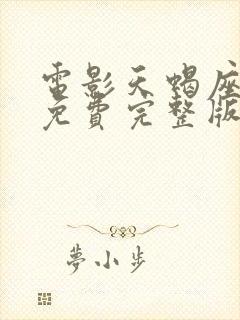 電影天蝎座
免費完整版
夢小步